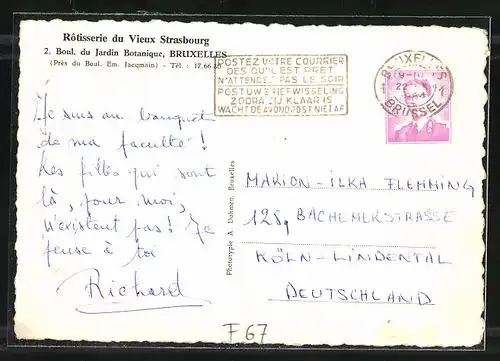 Rôtisserie du Vieux Strasbourg
2. Boul. du Jardin Botanique, BRUXELLES
(Près du Boul. Em. Jacqmain) - Tél. : 17.66.80
POSTEZ VOTRE COURRIER
DÈS QU'IL EST PRÊT
N'ATTENDEZ PAS LE SOIR
POST UW BRIEFWISSELING
ZODRA ZIJ KLAAR IS
WACHT DE AVONDPOST NIET AF
BRUXELLES
22
BRUSSEL
Je suis au banquet
de ma faculté !
Les filles qui sont
là, pour moi,
n'existent pas ! Je
pense à toi
Richard
Phototypie A. Dohmen, Bruxelles
MARION-ILKA FLEMMING
128g BACHEMERSTRASSE
KÖLN-LINDENTAL
DEUTSCHLAND
F67